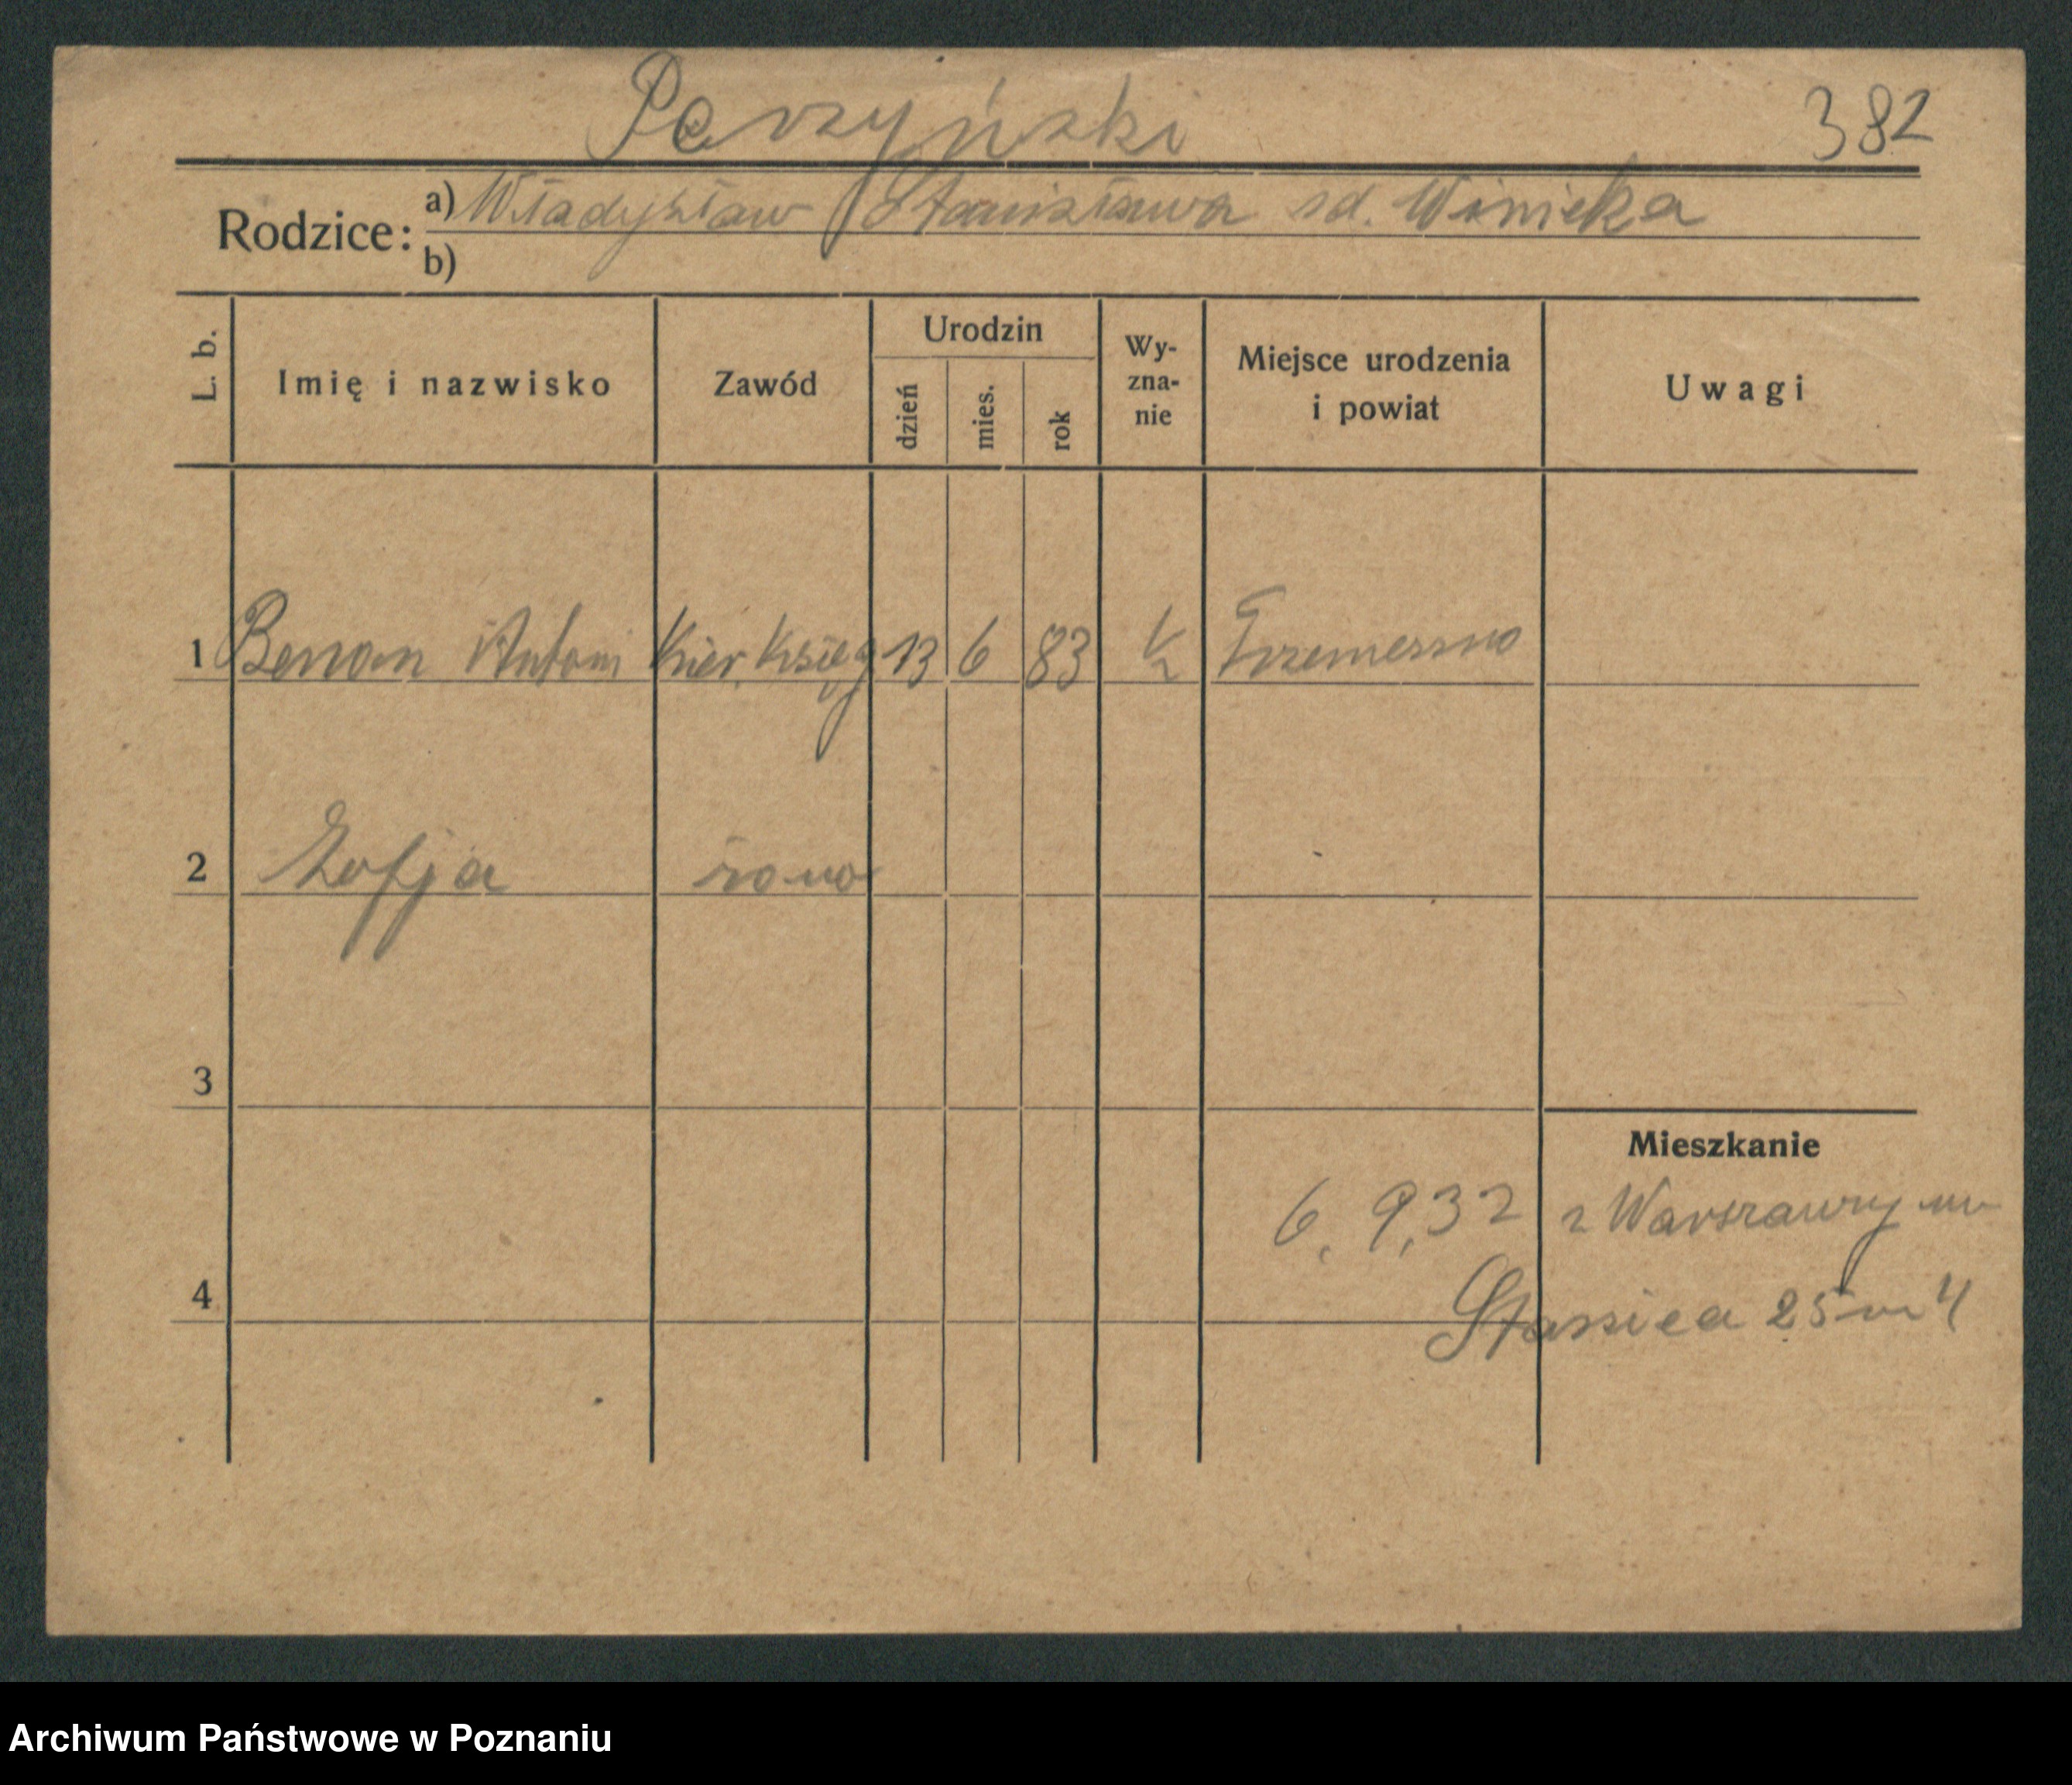 Perzyński 382
Rodzice: a) Władysław / Stanisława zd. Winieka
b)
L. b. Imię i nazwisko Zawód Urodzin dzień mies. rok Wy-zna-nie Miejsce urodzenia i powiat Uwagi
1 Benon Antoni Kier. Księg 13 6 83 Trzemeszno
2 Zofja żona
3
Mieszkanie
6. 9. 32 z Warszawy
4
Staszica 25 m 4
Archiwum Państwowe w Poznaniu